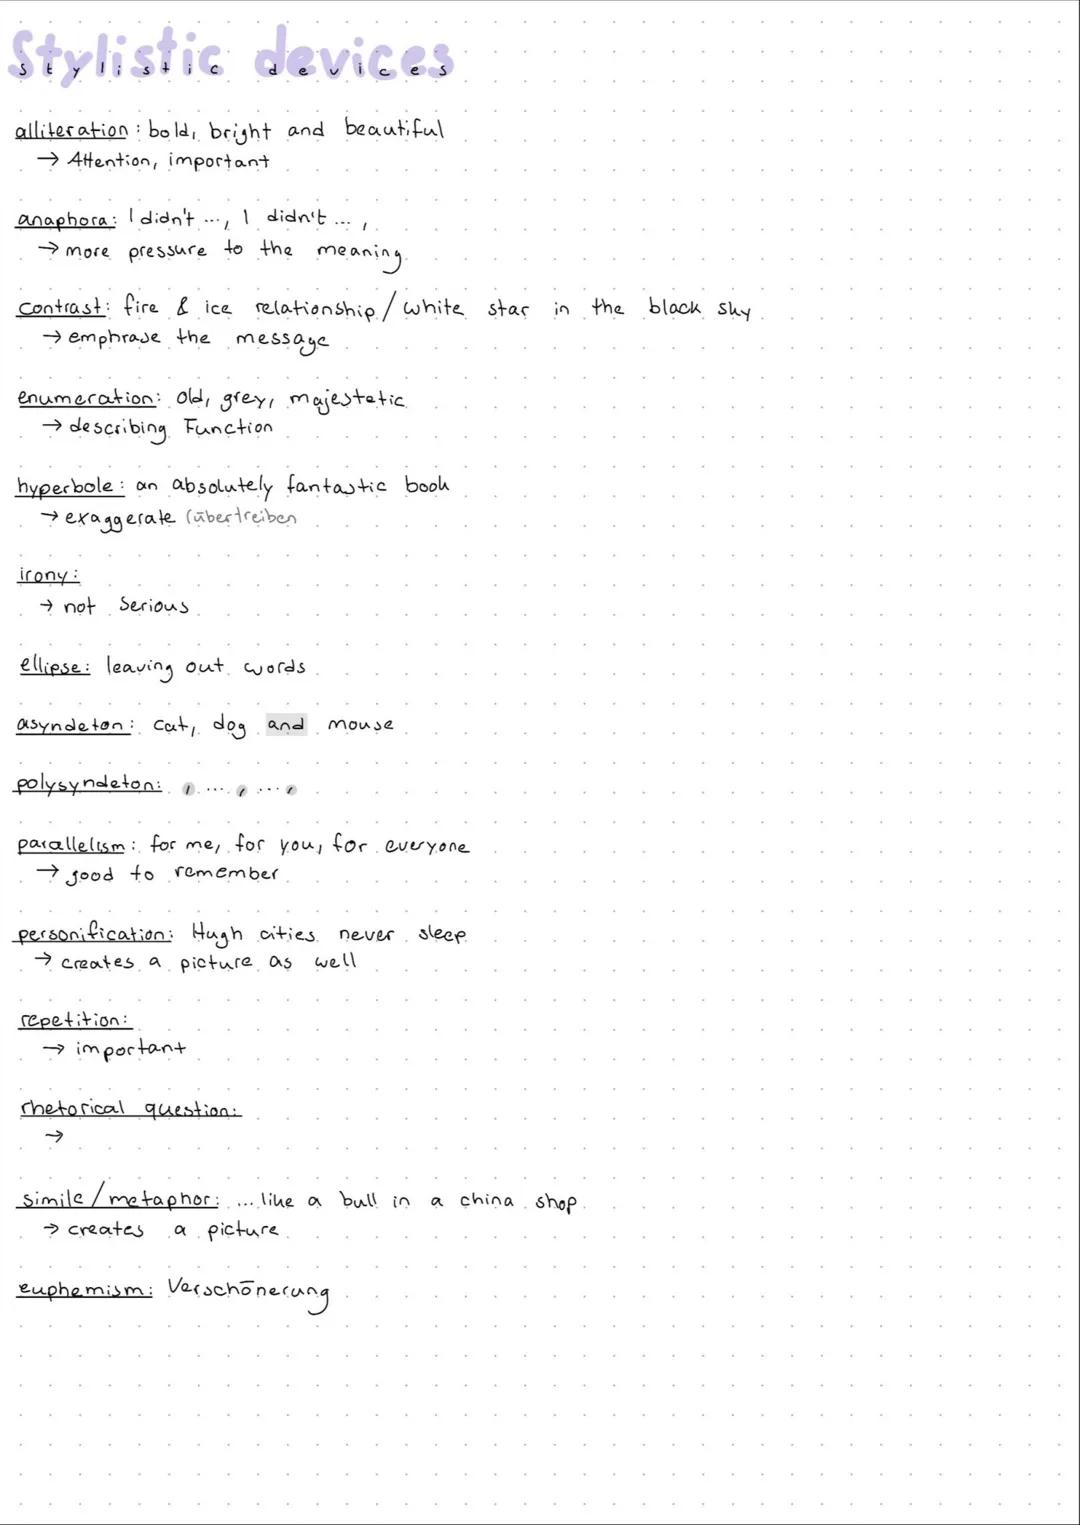 Stylistic devices
stylistic devices
alliteration: bold, bright and beautiful
→ Attention, important
anaphora: I didn't ..., I didn't ...,
→ more pressure to the meaning
contrast: fire & ice relationship / white star in the black sky
→ emphrase the message
enumeration: old, grey, majestetic
→ describing Function
hyperbole: an absolutely fantastic book
→ exaggerate (übertreiben
irony:
→ not serious
ellipse: leaving out words
asyndeton: cat, dog and mouse
polysyndeton: , ... , ... ,
parallelism: for me, for you, for everyone
→ good to remember
personification: Hugh cities never sleep
→ creates a picture as well
repetition:
→ important
rhetorical question:
→
simile / metaphor: ... like a bull in a china shop
→ creates a picture
euphemism: Verschönerung